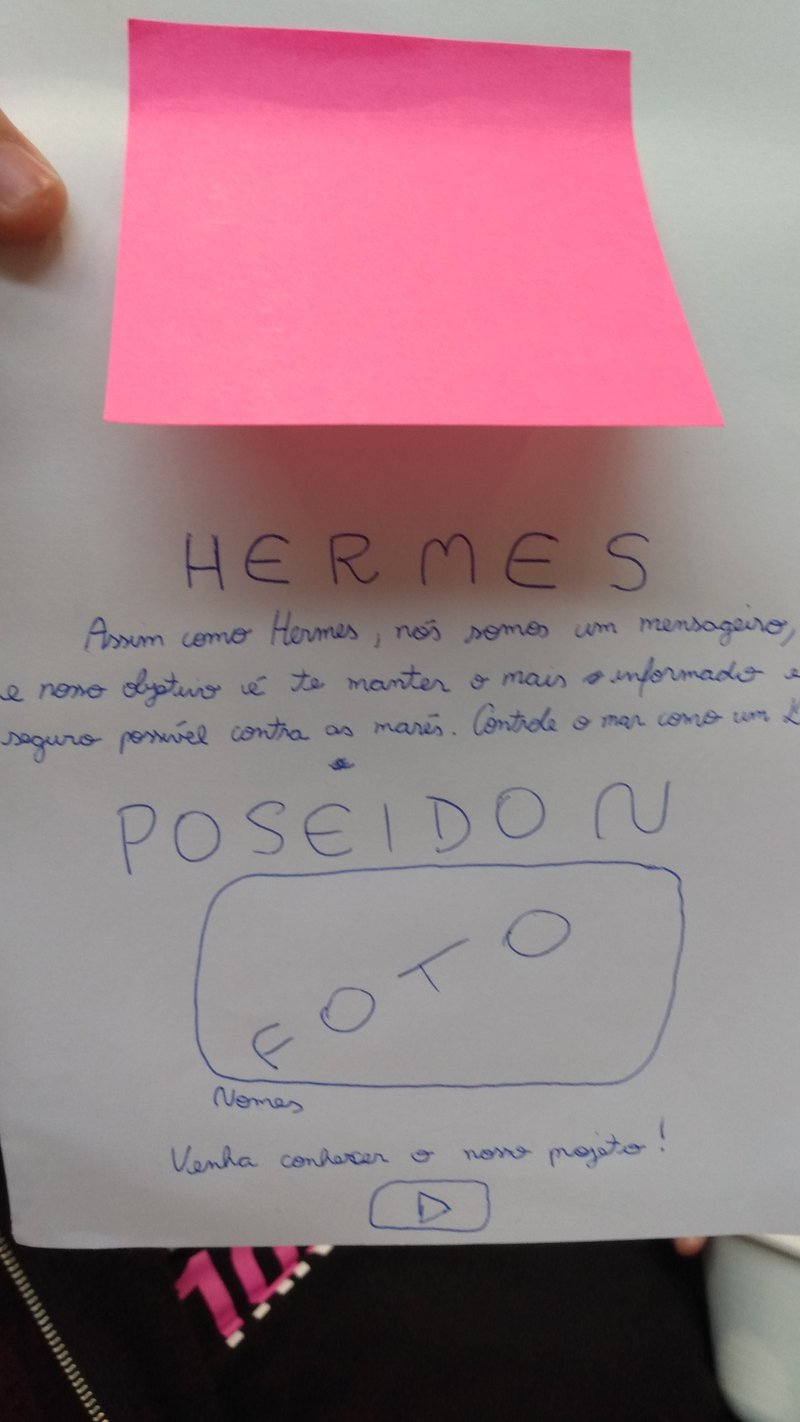 HERMES
Assim como Hermes, nós somos um mensageiro,
e nosso objetivo é te manter o mais informado e
seguro possível contra as marés. Controle o mar como um
POSEIDON
FOTO
Nomes
Venha conhecer o nosso projeto!